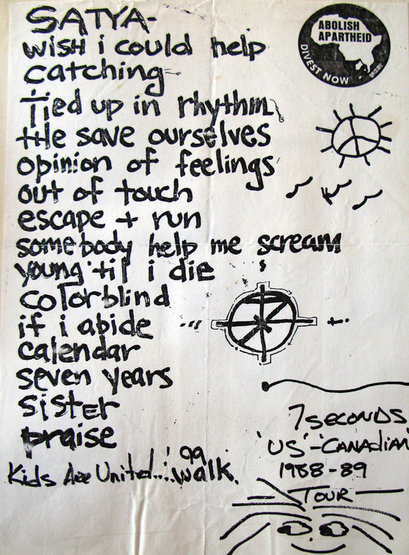 SATYA-
wish i could help
catching
Tied up in rhythm
the save ourselves
opinion of feelings
out of touch
escape + run
somebody help me scream
young 'til i die
colorblind
if i abide
calendar
seven years
sister
praise
Kids Are United...! 99
walk.
ABOLISH
APARTHEID
DIVEST NOW
7 SECONDS
'US'-CANADIAN
1988-89
TOUR